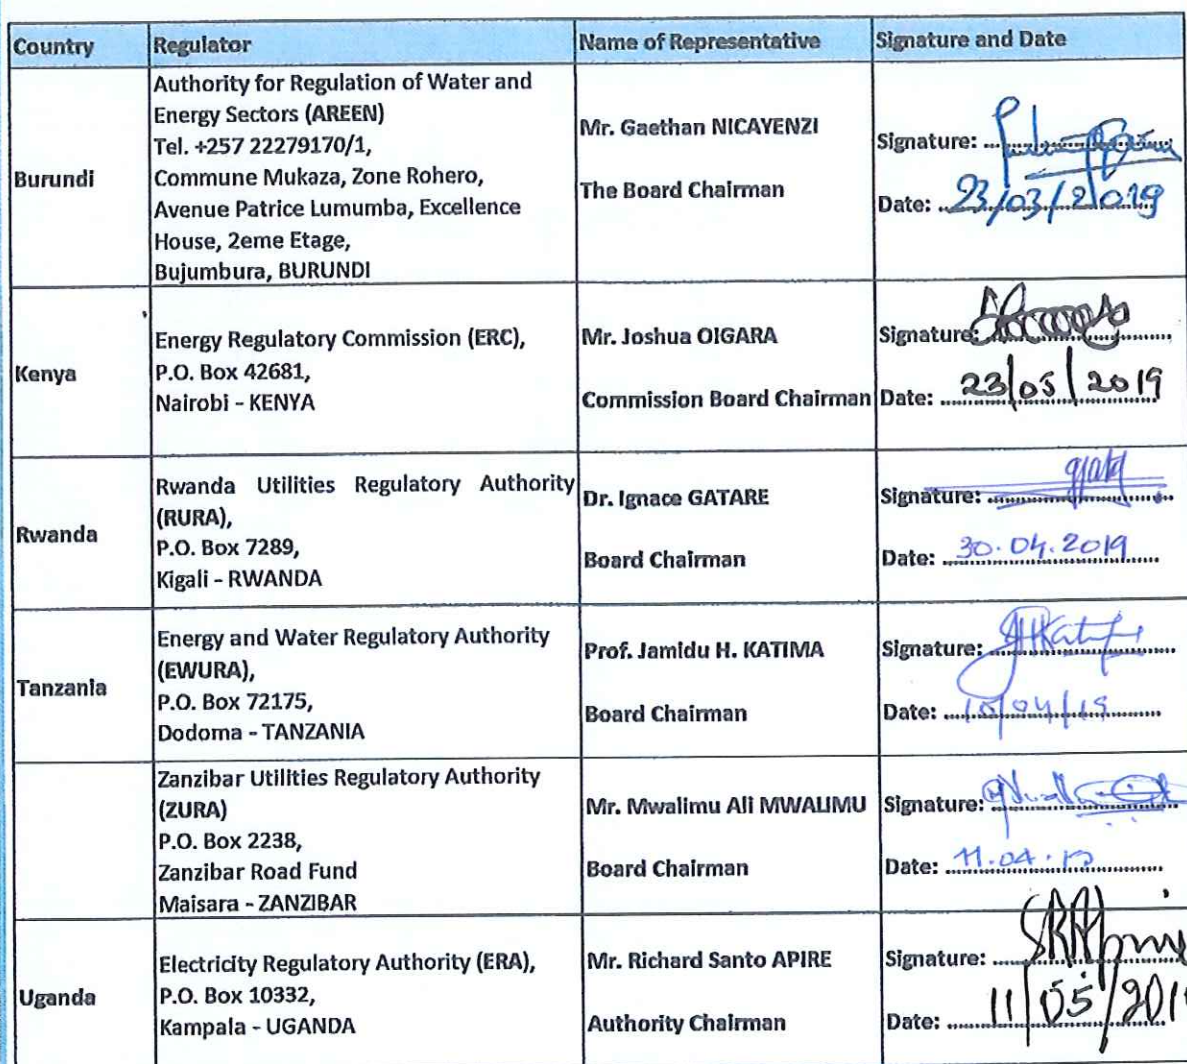 Country Regulator Name of Representative Signature and Date
Burundi
Authority for Regulation of Water and
Energy Sectors (AREEN)
Tel. +257 22279170/1,
Commune Mukaza, Zone Rohero,
Avenue Patrice Lumumba, Excellence
House, 2eme Etage,
Bujumbura, BURUNDI
Mr. Gaethan NICAYENZI
The Board Chairman
Signature:
Date: 23/03/2019
Kenya
Energy Regulatory Commission (ERC),
P.O. Box 42681,
Nairobi - KENYA
Mr. Joshua OIGARA
Commission Board Chairman
Signature:
Date: 23/05/2019
Rwanda
Rwanda Utilities Regulatory Authority
(RURA),
P.O. Box 7289,
Kigali - RWANDA
Dr. Ignace GATARE
Board Chairman
Signature:
Date: 30.04.2019
Tanzania
Energy and Water Regulatory Authority
(EWURA),
P.O. Box 72175,
Dodoma - TANZANIA
Prof. Jamidu H. KATIMA
Board Chairman
Signature:
Date:
Zanzibar Utilities Regulatory Authority
(ZURA)
P.O. Box 2238,
Zanzibar Road Fund
Maisara - ZANZIBAR
Mr. Mwalimu Ali MWALIMU
Board Chairman
Signature:
Date:
Uganda
Electricity Regulatory Authority (ERA),
P.O. Box 10332,
Kampala - UGANDA
Mr. Richard Santo APIRE
Authority Chairman
Signature:
Date: 11/05/201